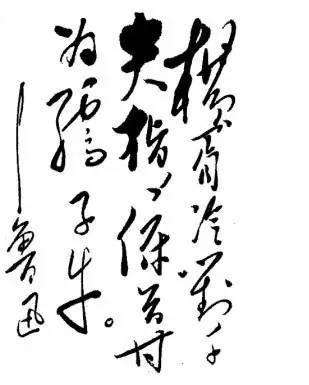 横眉冷對千
夫指，俯首甘
为孺子牛。
——鲁迅